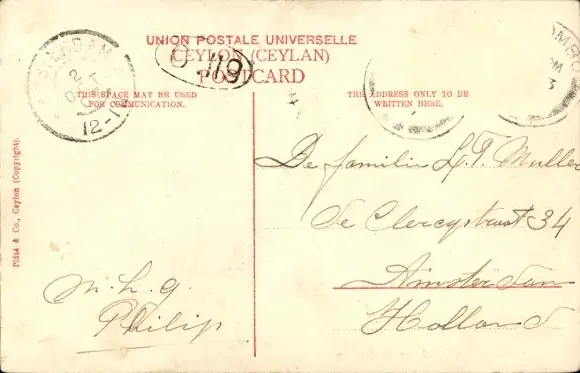 UNION POSTALE UNIVERSELLE
CEYLON (CEYLAN)
POSTCARD
THIS SPACE MAY BE USED
FOR COMMUNICATION.
THE ADDRESS ONLY TO BE
WRITTEN HERE.
AMSTERDAM
2
12-1
Plâté & Co., Ceylon (Copyright).
De familie L. T. Muller
de Clercqstraat 34
Amsterdam
Holland
m. h. g.
Philip